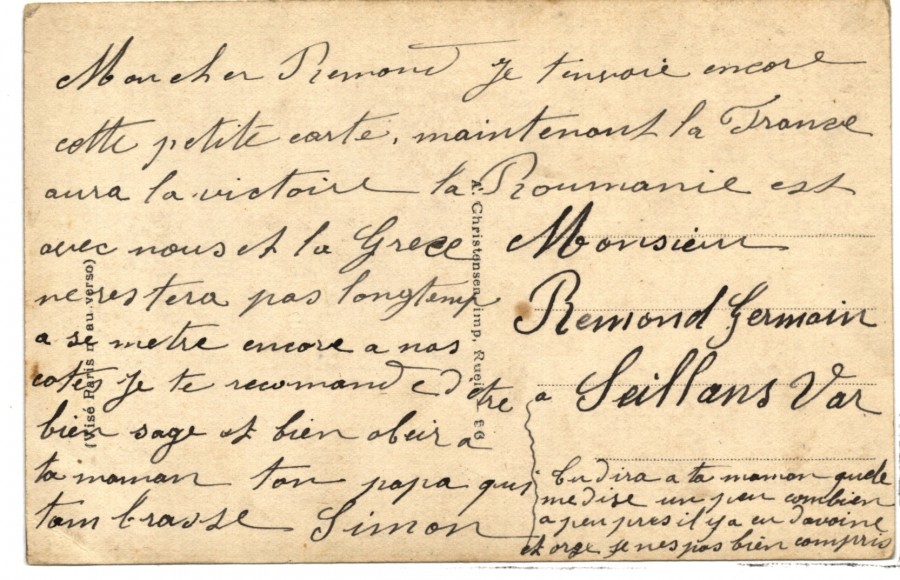 Mon cher Remond Je t'envoie encore
cette petite carte, maintenant la France
aura la victoire la Roumanie est
avec nous et la Grece
ne restera pas longtemp
a se metre encore a nos
cotes Je te recomande d etre
bien sage et bien obeir a
ta maman ton papa qui
tembrasse Simon
Monsieur
Remond Germain
a Seillans Var
tu dira a ta maman quele
me dise un peu combien
a peu pres il y a eu davoine
et orge Je nes pas bien compris
(Visé Paris n° au verso)
A. Christensen, imp, Rueil